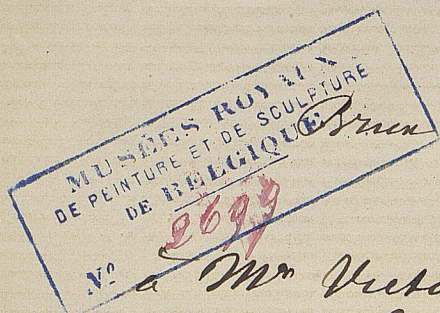 MUSÉES ROYAUX
DE PEINTURE ET DE SCULPTURE
DE BELGIQUE
Nº 2699
Brux
à Mr Victo